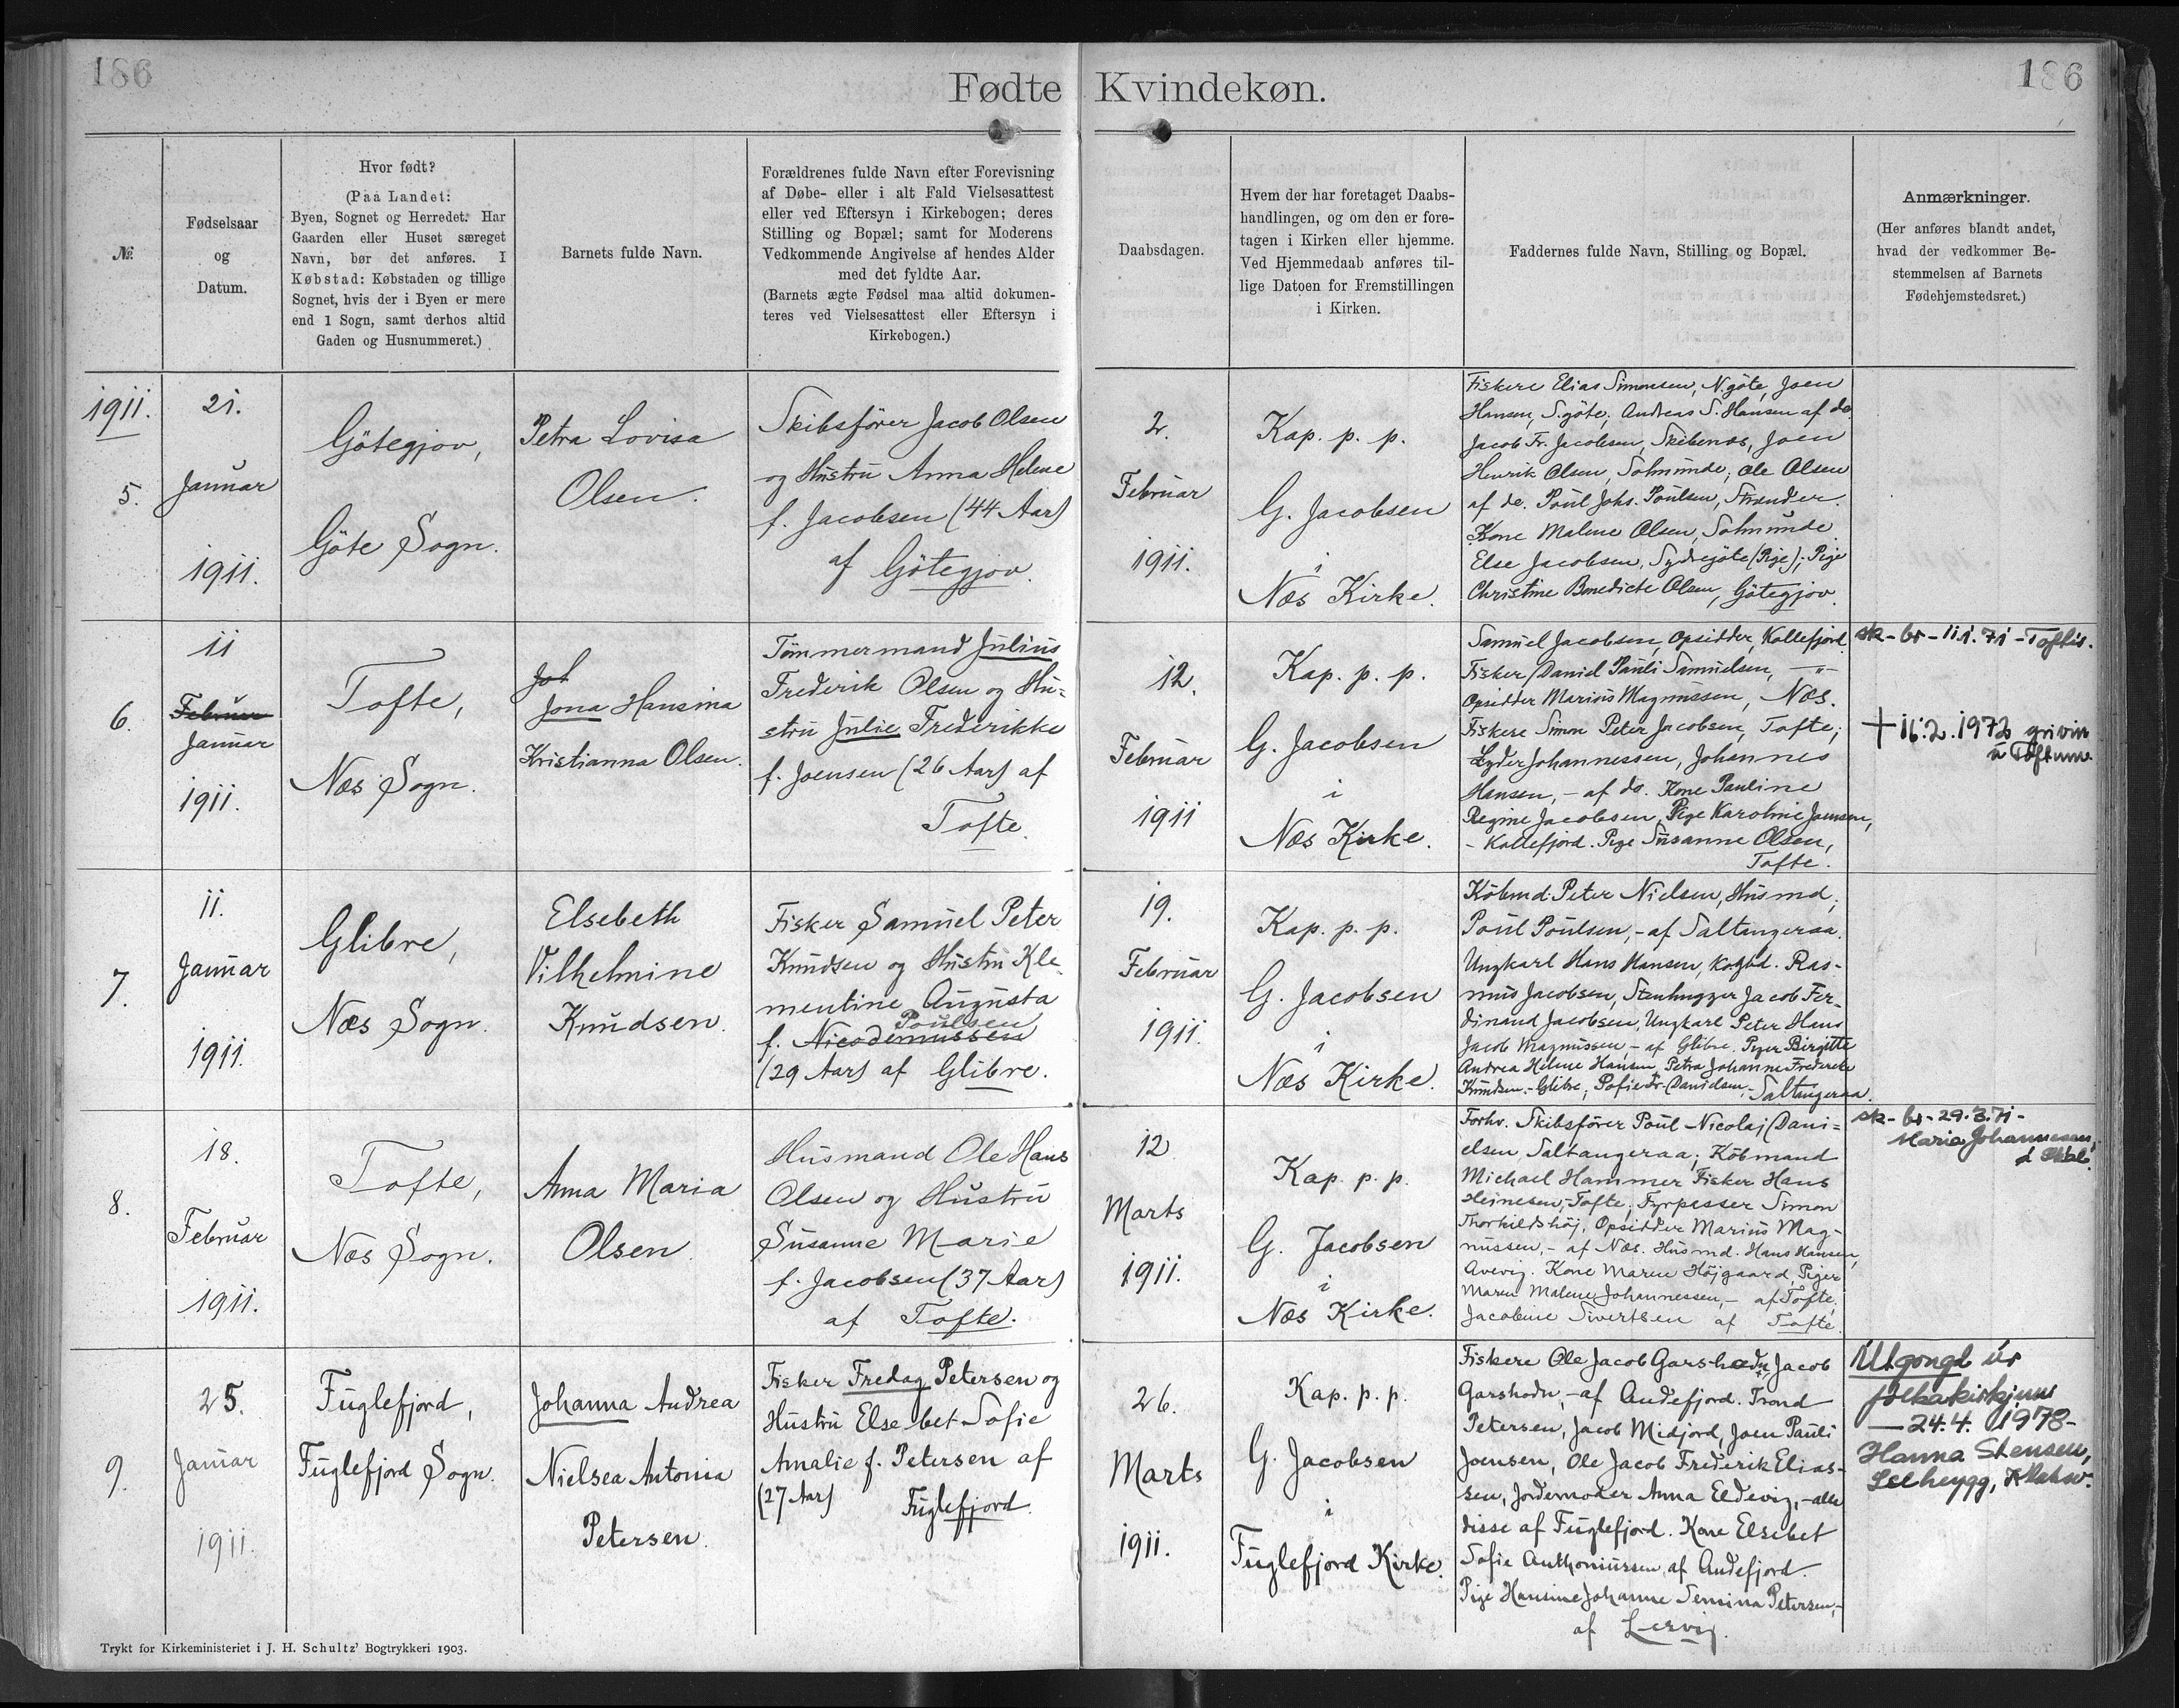 186
Fødte Kvindekøn.
186
№
Fødselsaar
og
Datum.
Hvor født?
(Paa Landet:
Byen, Sognet og Herredet. Har
Gaarden eller Huset særeget
Navn, bør det anføres. I
Købstad: Købstaden og tillige
Sognet, hvis der i Byen er mere
end 1 Sogn, samt derhos altid
Gaden og Husnummeret.)
Barnets fulde Navn.
Forældrenes fulde Navn efter Forevisning
af Døbe- eller i alt Fald Vielsesattest
eller ved Eftersyn i Kirkebogen; deres
Stilling og Bopæl; samt for Moderens
Vedkommende Angivelse af hendes Alder
med det fyldte Aar.
(Barnets ægte Fødsel maa altid dokumen-
teres ved Vielsesattest eller Eftersyn i
Kirkebogen.)
Daabsdagen.
Hvem der har foretaget Daabs-
handlingen, og om den er fore-
tagen i Kirken eller hjemme.
Ved Hjemmedaab anføres til-
lige Datoen for Fremstillingen
i Kirken.
Faddernes fulde Navn, Stilling og Bopæl.
Anmærkninger.
(Her anføres blandt andet,
hvad der vedkommer Be-
stemmelsen af Barnets
Fødehjemstedsret.)
1911.
5.
21.
Januar
1911.
Götegjov,
Göte Sogn.
Petra Lovisa
Olsen.
Skibsfører Jacob Olsen
og Hustru Anna Helene
f. Jacobsen (44 Aar)
af Götegjov.
2.
Februar
1911.
Kap. p. p.
G. Jacobsen
i
Næs Kirke.
Fiskere Elias Simonsen, N.göte, Joen
Hansen, S.göte, Andreas S. Hansen af do.
Jacob Fr. Jacobsen, Skibenæs, Joen
Henrik Olsen, Solmunde, Ole Olsen
af do. Poul Johs. Poulsen, Strender.
Kone Malene Olsen, Solmunde.
Else Jacobsen, Sydregöte (Pige); Pige
Christine Benedicte Olsen, Götegjov.
6.
11
Februar
Januar
1911.
Tofte,
Næs Sogn.
Joh
Jona Hansina
Kristianna Olsen.
Tømmermand Julius
Frederik Olsen og Hu=
stru Julie Frederikke
f. Joensen (26 Aar) af
Tofte.
12.
Februar
1911
Kap. p. p.
G. Jacobsen
i
Næs Kirke.
Samuel Jacobsen, Opsidder, Kollefjord
Fisker Daniel Pauli Samuelsen, — " —
Opsidder Marius Magnussen, Næs.
Fiskere Simon Peter Jacobsen, Tofte;
Lyder Johannessen, Johannes
Hansen, - af do. Kone Pauline
Regine Jacobsen, Pige Karoline Joensen,
- Kollefjord. Pige Susanne Olsen,
Tofte.
sk - br - 11.1.71 - Toftis.
+ 16.2.1972 grivin
á Toftum.
7.
11.
Januar
1911.
Glibre,
Næs Sogn.
Elsebeth
Vilhelmine
Knudsen.
Fisker Samuel Peter
Knudsen og Hustru Kle
mentine Augusta
Poulsen
f. Nicodemussen
(29 Aar) af Glibre.
19.
Februar
1911.
Kap. p. p.
G. Jacobsen
i
Næs Kirke.
Købmd. Peter Nielsen, Husmd.
Poul Poulsen, - af Saltangeraa.
Ungkarl Hans Hansen, Kgsbd. Ras-
mus Jacobsen, Stenhugger Jacob Fer-
dinand Jacobsen, Ungkarl Peter Hans
Jacob Magnussen, - af Glibre. Piger Birgitte
Andrea Helene Hansen, Petra Johanne Frederikke
Knudsen - Glibre, Sofie Fr. Davidsen, - Saltangeraa.
8.
18.
Februar
1911.
Tofte,
Næs Sogn.
Anna Maria
Olsen.
Husmand Ole Hans
Olsen og Hustru
Susanne Marie
f. Jacobsen (37 Aar)
af Tofte.
12
Marts
1911.
Kap. p. p.
G. Jacobsen
i
Næs Kirke.
Forhv. Skibsfører Poul Nicolaj Dani=
elsen, Saltangeraa; Købmand
Michael Hammer Fisker Hans
Heinesen, Tofte, Fyrpasser Simon
Thorkildshöj, Opsidder Marius Mag-
nussen, - af Næs. Husmd. Hans Hansen,
Avevig. Kone Maren Højgaard, Piger
Maren Malene Johannessen, - af Tofte,
Jacobine Sivertsen af Tofte.
sk - br - 29.3.71 -
Maria Johannesen,
9.
25.
Januar
1911.
Fuglefjord,
Fuglefjord Sogn.
Johanna Andrea
Nielsea Antonia
Petersen.
Fisker Fredag Petersen og
Hustru Elsebet Sofie
Amalie f. Petersen af
(27 Aar) Fuglefjord.
26.
Marts
1911.
Kap. p. p.
G. Jacobsen
i
Fuglefjord Kirke.
Fiskere Ole Jacob Garshodn, Jacob
Garshodn, - af Andefjord. Trond
Petersen, Jacob Midjord, Joen Pauli
Joensen, Ole Jacob Frederik Elias-
sen, Jordemoder Anna Eldevig, - alle
disse af Fuglefjord. Kone Elsebet
Sofie Anthoniussen, af Andefjord.
Pige Hansine Johanne Semina Petersen, -
af Lervig.
Útgongd úr
fólkakirkjuni
— 24.4. 1978 -
Hanna Stensen,
Trykt for Kirkeministeriet i J. H. Schultz' Bogtrykkeri 1903.